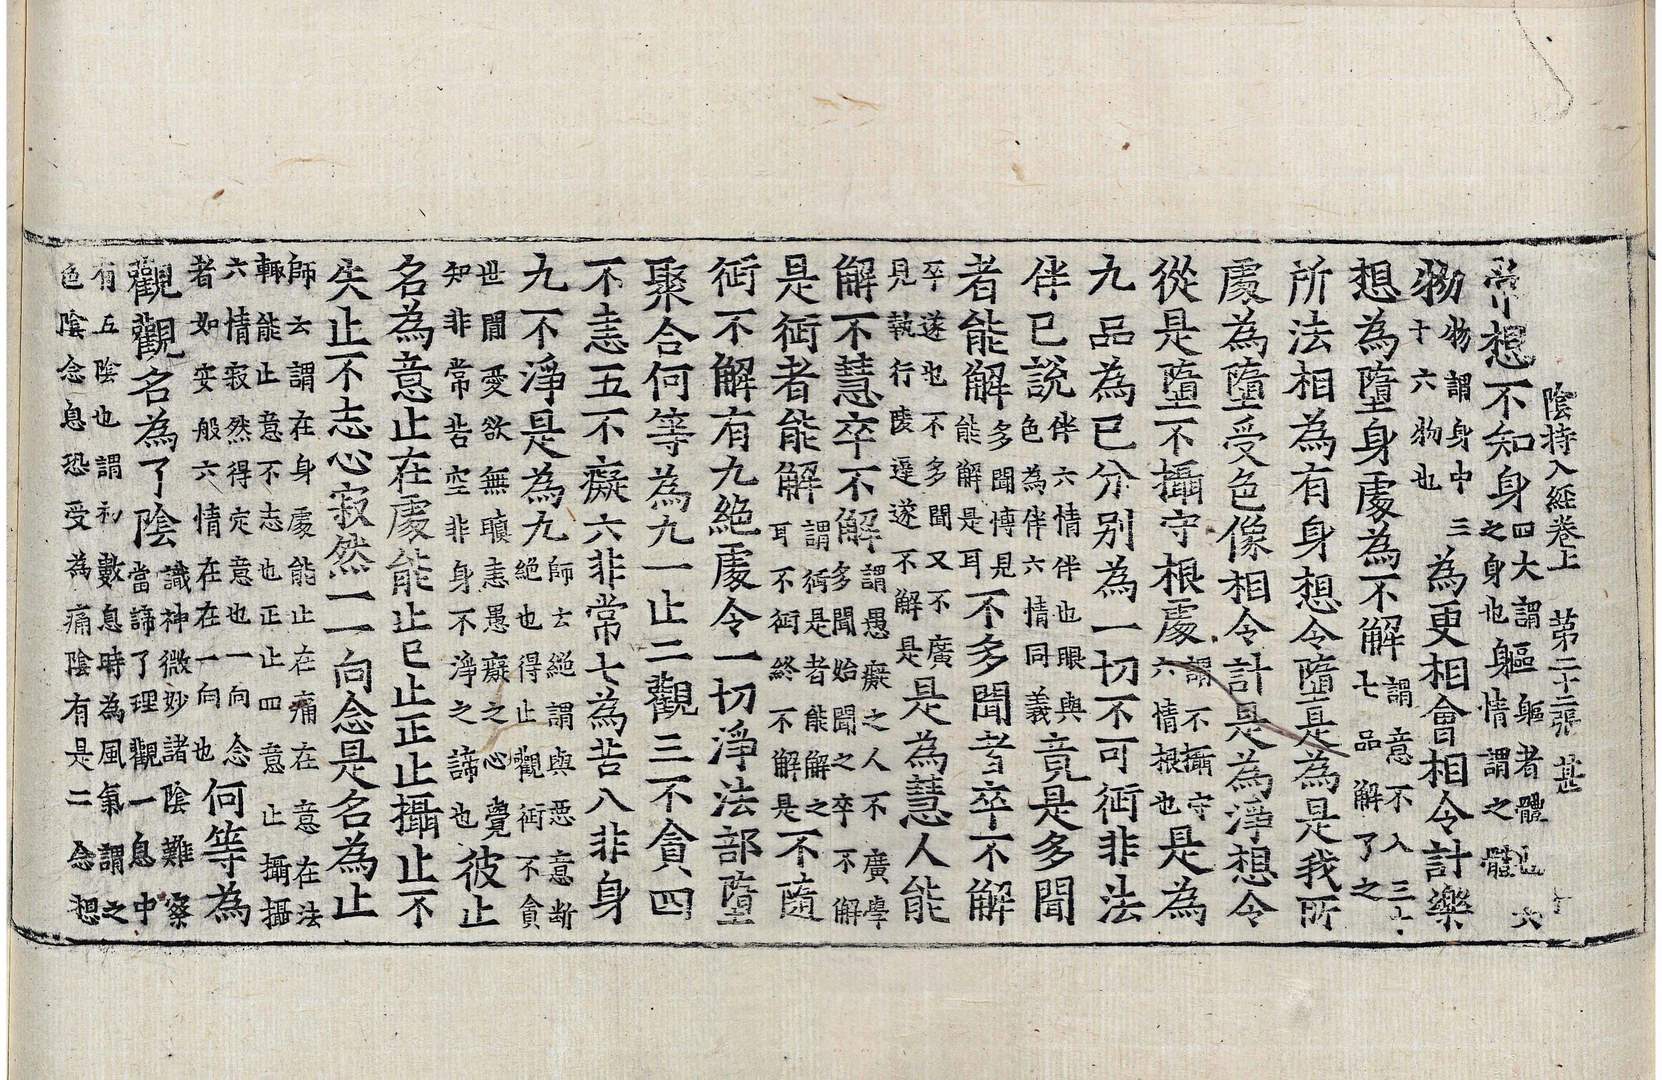 陰持入經卷上　第二十二張　甚
常想不知身四大謂軀軀者體也六之身也軀情謂之體
物物謂身中三十六物也為更相會相令計樂
想為墮身處為不解謂意不入三十七品解了之
所法相為有身想令墮是為是我所
處為墮受色像相令計是為淨想令
從是墮不攝守根處謂不攝守六情根也是為
九品為已分別為一切不可衍非法
伴已說伴六情伴也眼與色為伴六情同義竟是多聞
者能解多聞博見能解是耳不多聞者卒不解
卒遂也不多聞又不廣見執行陵遲遂不解是是為慧人能
解不慧卒不解謂愚癡之人不廣學多聞始聞之卒不解
是衍者能解謂衍是者能解之耳不衍終不解是不隨
衍不解有九絕處令一切淨法部墮
聚合何等為九一止二觀三不貪四
不恚五不癡六非常七為苦八非身
九不淨是為九師云絕謂與惡意断絕也得止觀衍不貪
世間愛欲無瞋恚愚癡之心覺知非常苦空非身不淨之諦也彼止
名為意止在處能止已止正止攝止不
失止不志心寂然一一向念是名為止
師云謂在身處能止在痛在意在法輙能止意不志也正止四意止攝攝
六情寂然得定意也一向念者如安般六情在在一向也何等為
觀觀名為了陰識神微妙諸陰難察當諦了理觀一息中
有五陰也謂初數息時為風氣謂之色陰念息恐受為痛陰有是二念想